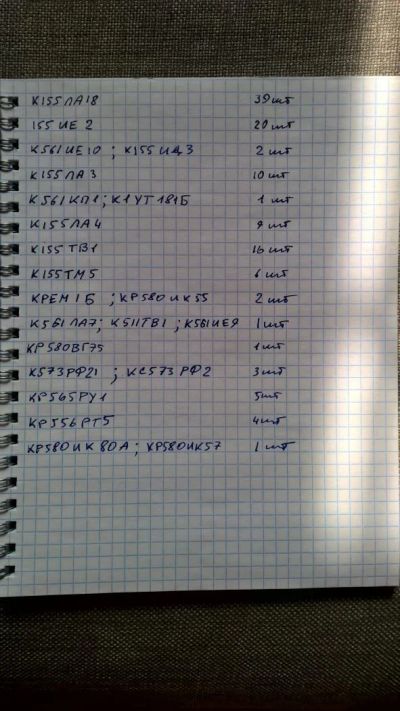 К155ЛА18 39 шт
155 ИЕ 2 20 шт
К561ИЕ10 ; К155ИД3 2 шт
К155ЛА3 10 шт
К561КП1; К1УТ181Б 1 шт
К155ЛА4 9 шт
К155ТВ1 16 шт
К155ТМ5 6 шт
КРЕМ1Б ; КР580ИК55 2 шт
К561ЛА7; К511ТВ1 ; К561ИЕ9 1 шт
КР580ВГ75 1 шт
К573РФ21 ; КС573РФ2 3 шт
КР565РУ1 5шт
КР556РТ5 4шт
КР580ИК80А ; КР580ИК57 1 шт